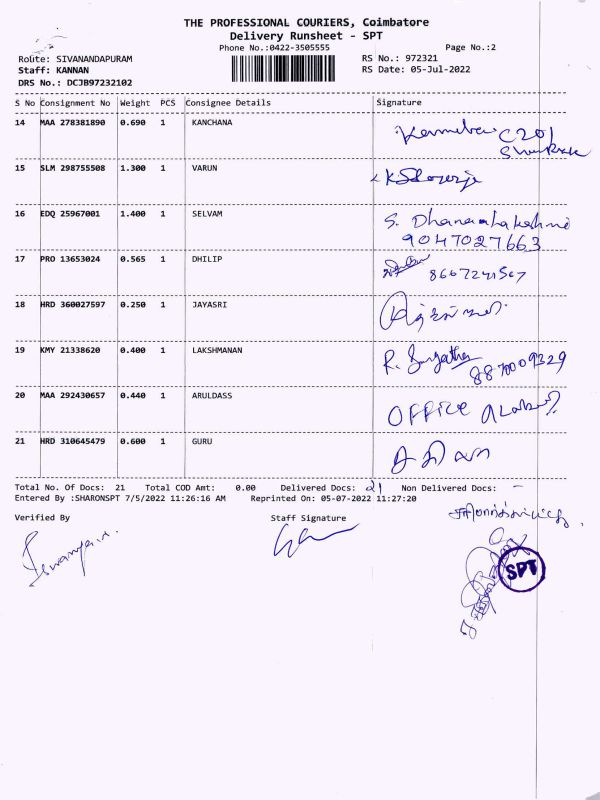 THE PROFESSIONAL COURIERS, Coimbatore
Delivery Runsheet - SPT
Phone No.:0422-3505555 Page No.:2
Route: SIVANANDAPURAM RS No.: 972321
Staff: KANNAN RS Date: 05-Jul-2022
DRS No.: DCJB97232102
S No Consignment No Weight PCS Consignee Details Signature
14 MAA 278381890 0.690 1 KANCHANA
C201
15 SLM 298755508 1.300 1 VARUN
16 EDQ 25967001 1.400 1 SELVAM S. Dhanalakshmi
9047027663
17 PRO 13653024 0.565 1 DHILIP
18 HRD 360027597 0.250 1 JAYASRI
19 KMY 21338620 0.400 1 LAKSHMANAN
20 MAA 292430657 0.440 1 ARULDASS OFFICE
21 HRD 310645479 0.600 1 GURU
Total No. Of Docs: 21 Total COD Amt: 0.00 Delivered Docs: 21 Non Delivered Docs: -
Entered By :SHARONSPT 7/5/2022 11:26:16 AM Reprinted On: 05-07-2022 11:27:20
Verified By Staff Signature
SPT